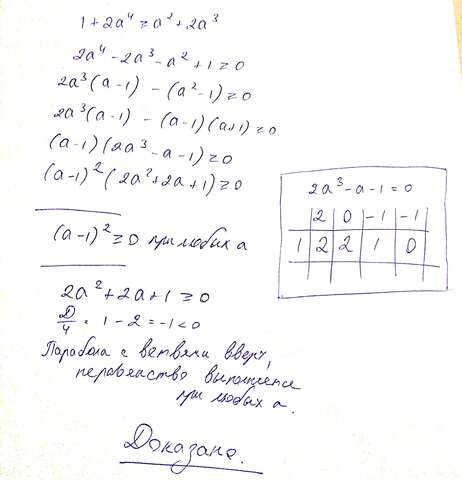 1 + 2a⁴ ≥ a² + 2a³
2a⁴ - 2a³ - a² + 1 ≥ 0
2a³(a-1) - (a²-1) ≥ 0
2a³(a-1) - (a-1)(a+1) ≥ 0
(a-1)(2a³ - a - 1) ≥ 0
(a-1)²(2a² + 2a + 1) ≥ 0
(a-1)² ≥ 0 при любых a
2a² + 2a + 1 ≥ 0
D/4 = 1 - 2 = -1 < 0
Парабола с ветвями вверх,
неравенство выполняется
при любых a.
Доказано.
2a³ - a - 1 = 0
2 0 -1 -1
1 2 2 1 0